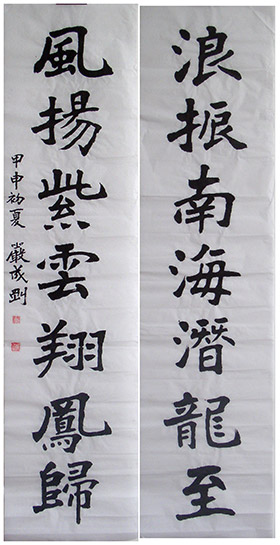 浪振南海潛龍至
風揚紫雲翔鳳歸
甲申初夏 嚴成剛